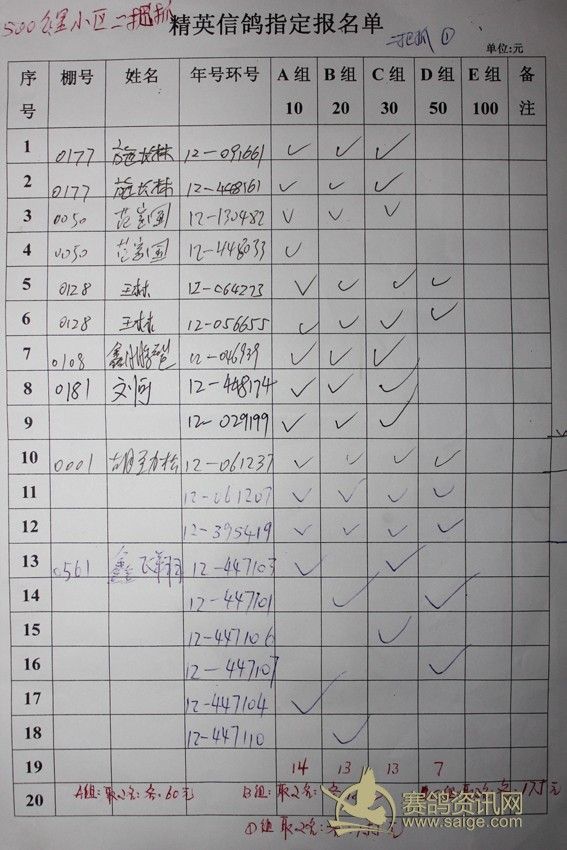 500公里小区二把抓
精英信鸽指定报名单
二把抓 ①
单位:元
序号 棚号 姓名 年号环号 A组 10 B组 20 C组 30 D组 50 E组 100 备注
1 0177 12-091661 ✓ ✓ ✓
2 0177 12-448161 ✓ ✓ ✓
3 0050 12-130482 ✓ ✓ ✓
4 0050 12-448033 ✓
5 0128 王林 12-064273 ✓ ✓ ✓ ✓
6 0128 王林 12-056655 ✓ ✓ ✓ ✓
7 0108 12-046939 ✓ ✓ ✓
8 0181 刘 12-448174 ✓ ✓ ✓
9 12-029199 ✓ ✓ ✓
10 0001 12-061237 ✓ ✓ ✓ ✓
11 12-061207 ✓ ✓ ✓ ✓
12 12-395419 ✓ ✓ ✓ ✓
13 0561 鑫飞翔 12-447103 ✓ ✓
14 12-447101 ✓ ✓
15 12-447106 ✓
16 12-447107 ✓
17 12-447104 ✓
18 12-447110 ✓
19 14 13 13 7
20 A组:取2名:各:60元 B组:取2名:各 175元
D组取2名: 元
赛鸽资讯网
www.saige.com